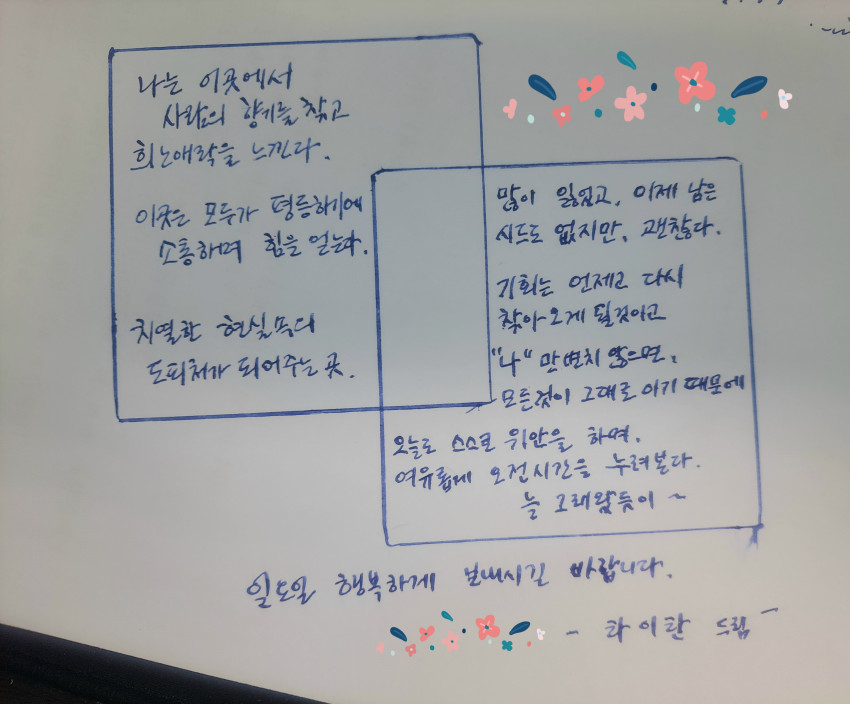 나는 이곳에서
사람의 향기를 찾고
희노애락을 느낀다.
이곳은 모두가 평등하기에
소통하며 힘을 얻는다.
치열한 현실속의
도피처가 되어주는 곳.
많이 잃었고, 이제 남은
시드도 없지만, 괜찮다.
기회는 언제고 다시
찾아오게 될것이고
"나" 만 변치 않으면,
모든것이 그대로 이기 때문에
오늘도 스스로 위안을 하며,
여유롭게 오전시간을 누려본다.
늘 그래왔듯이 ~
일요일 행복하게 보내시길 바랍니다.
- 라이란 드림 -